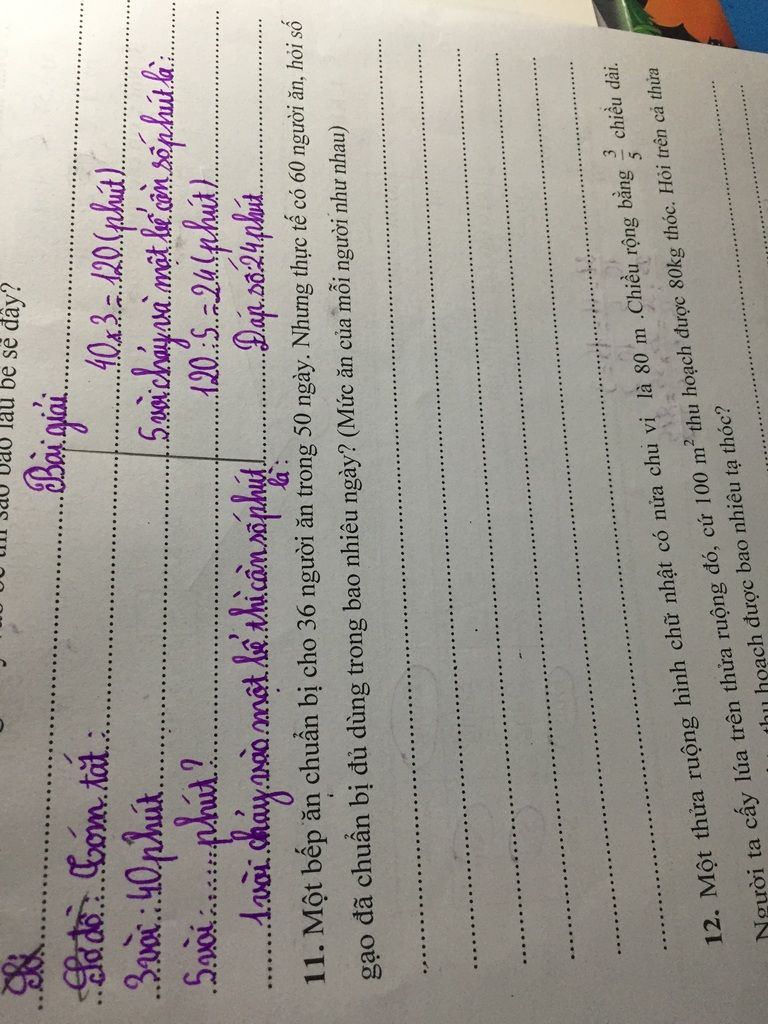 bao lâu bể sẽ đầy?
Bài giải
Sơ đồ: Tóm tắt:
3 vòi: 40 phút
5 vòi: ...... phút?
1 vòi chảy vào một bể thì cần số phút là:
40 x 3 = 120 (phút)
5 vòi chảy và một bể cần số phút là:
120 : 5 = 24 (phút)
Đáp số: 24 phút
11. Một bếp ăn chuẩn bị cho 36 người ăn trong 50 ngày. Nhưng thực tế có 60 người ăn, hỏi số
gạo đã chuẩn bị đủ dùng trong bao nhiêu ngày? (Mức ăn của mỗi người như nhau)
12. Một thửa ruộng hình chữ nhật có nửa chu vi là 80 m .Chiều rộng bằng 3/5 chiều dài.
Người ta cấy lúa trên thửa ruộng đó, cứ 100 m² thu hoạch được 80kg thóc. Hỏi trên cả thửa
thu hoạch được bao nhiêu tạ thóc?